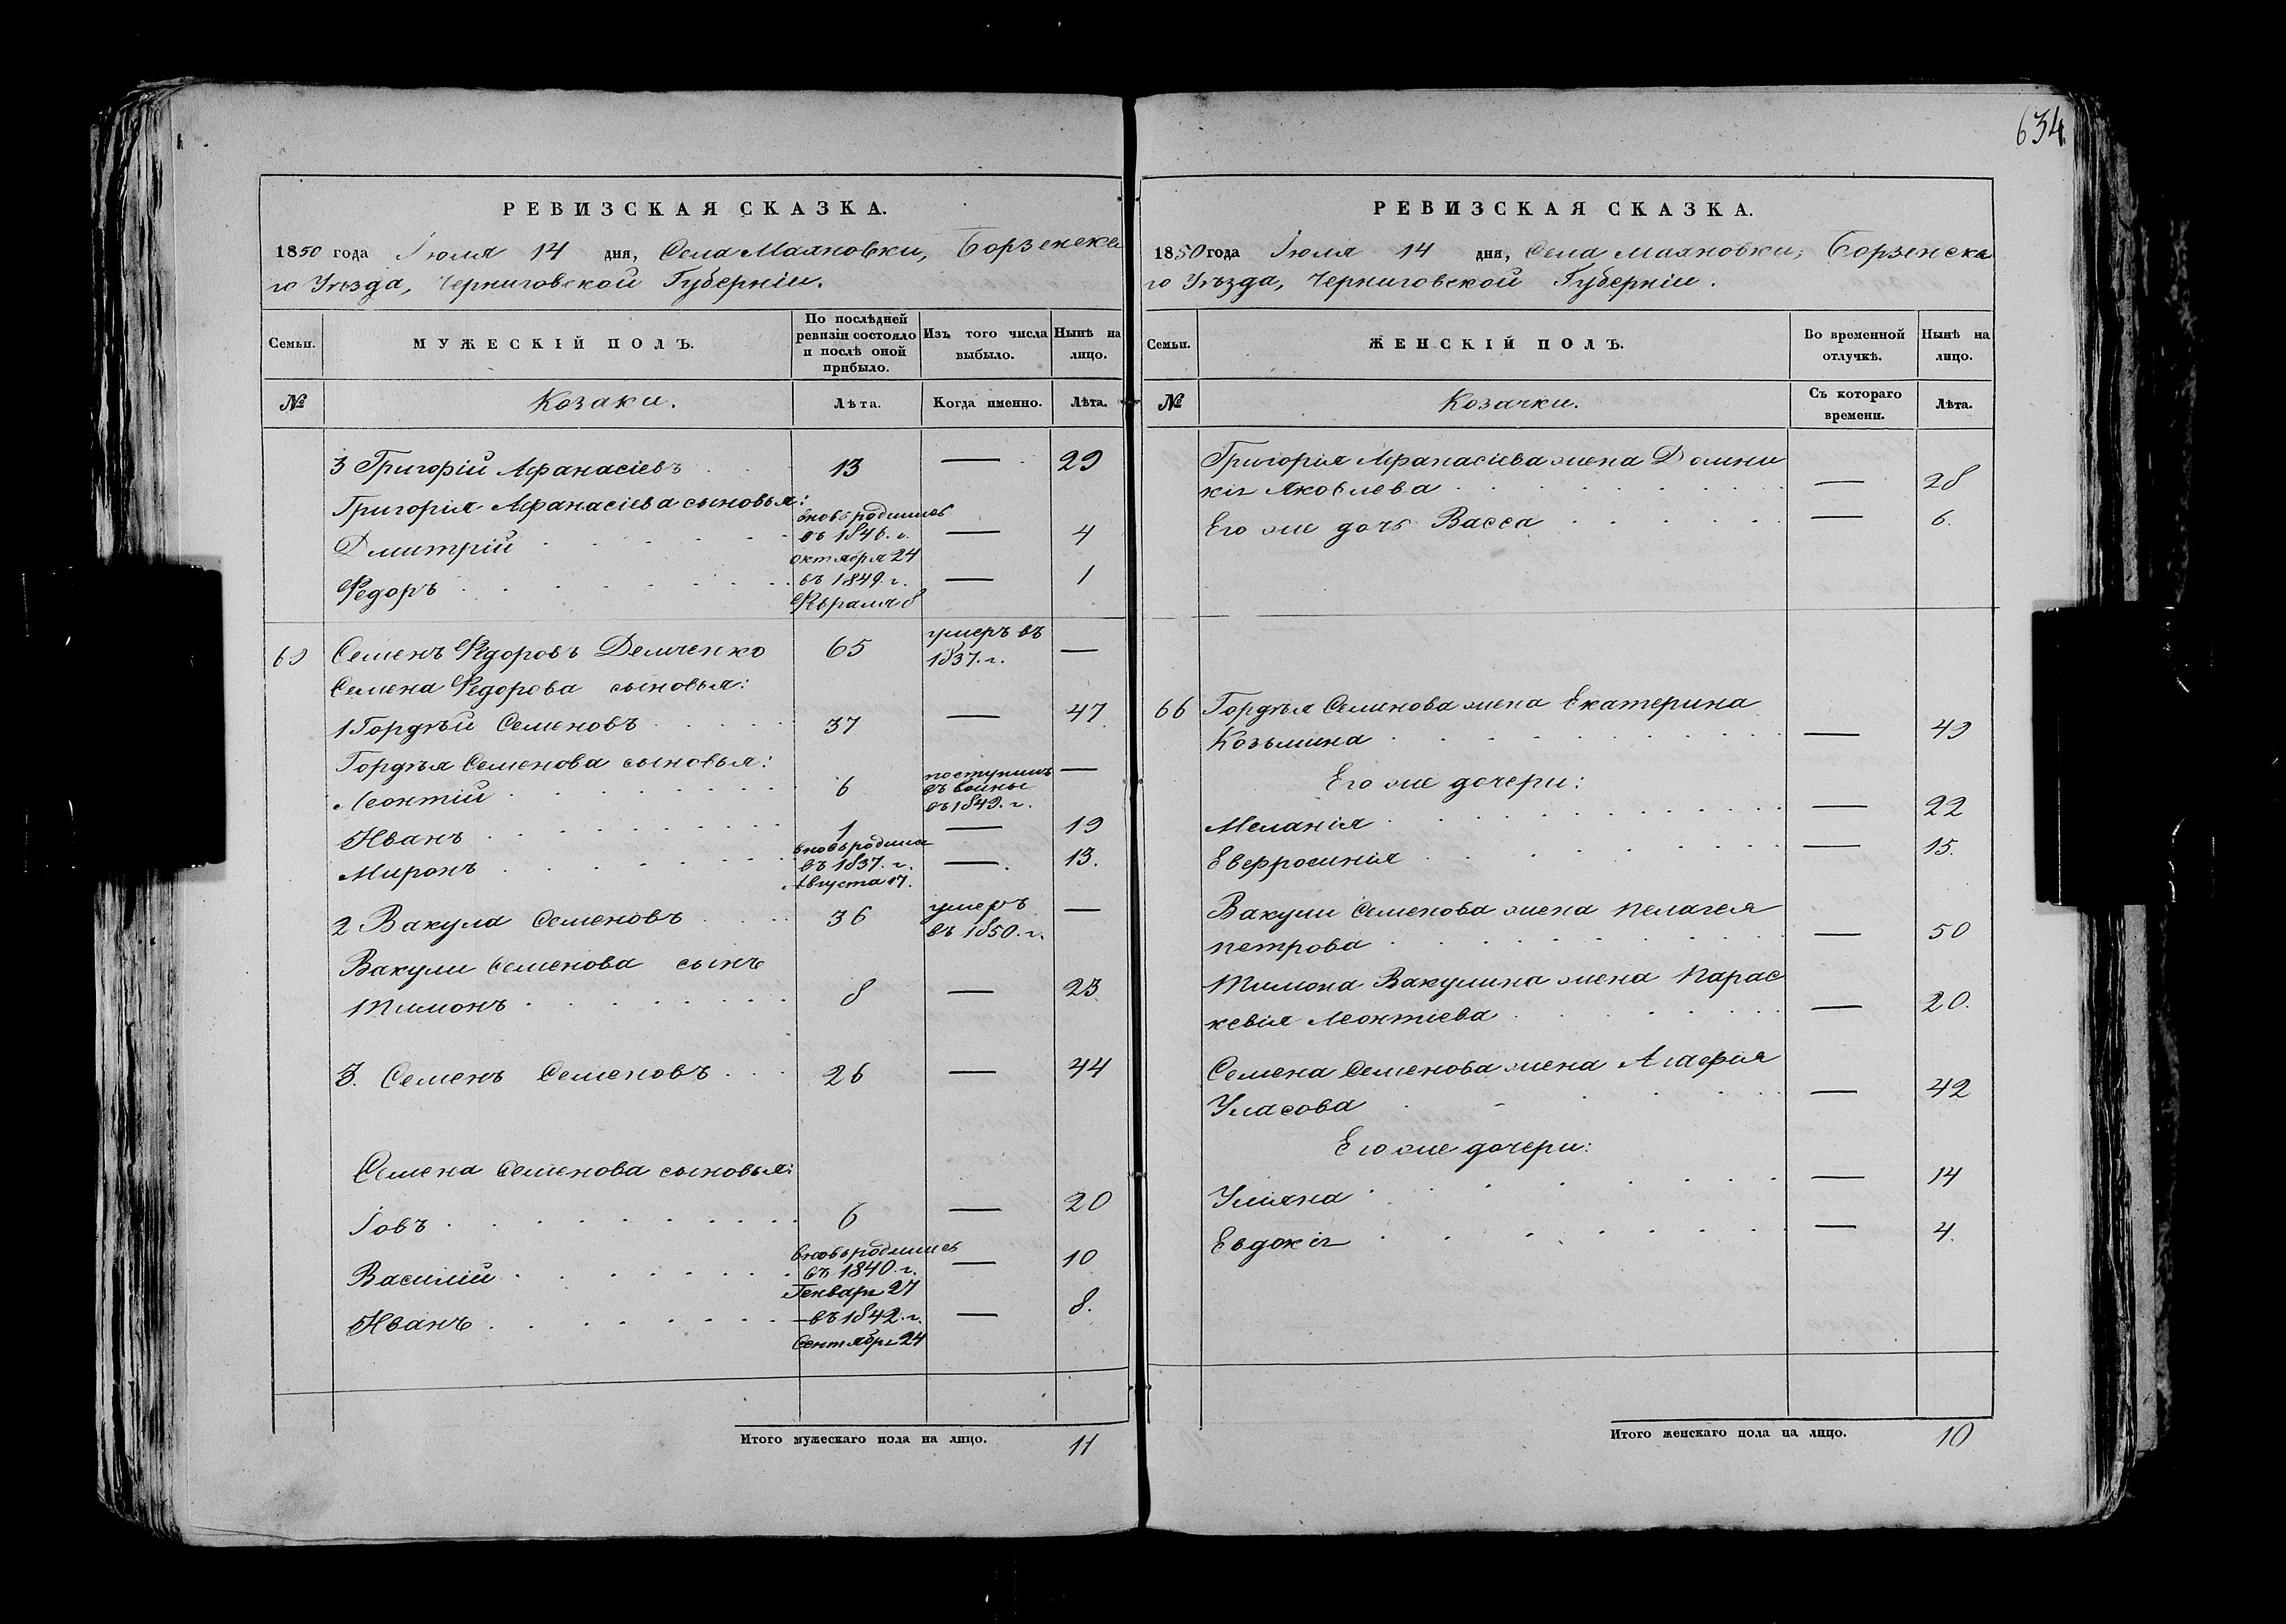 634.
РЕВИЗСКАЯ СКАЗКА.
1850 года Іюля 14 дня, Села Маяновки, Борзенска
го Уѣзда, Черниговской Губерніи.
Семьи.
МУЖЕСКІЙ ПОЛЪ.
По послѣдней ревизіи состояло и послѣ оной прибыло.
Изъ того числа выбыло.
Нынѣ на лицо.
№
Козаки.
Лѣта.
Когда именно.
Лѣта.
3 Григорій Афанасіевъ 13 — 29
Григорія Афанасіева сыновья:
Дмитрій вновь родился въ 1846. г. октября 24 — 4
Федоръ въ 1849. г. Февраля 8 — 1
69 Семенъ Федоровъ Демченко 65 умеръ въ 1837. г. —
Семена Федорова сыновья:
1 Гордѣй Семеновъ 37 — 47
Гордѣя Семенова сыновья:
Леонтій 6 поступилъ въ воины въ 1849. г. —
Иванъ 1 — 19
Миронъ вновь родился въ 1837. г. Августа 17. — 13.
2 Вакула Семеновъ 36 умеръ въ 1850. г. —
Вакули Семенова сынъ
Тимонъ 8 — 23
3. Семенъ Семеновъ 26 — 44
Семена Семенова сыновья:
Іовъ 6 — 20
Василій вновь родился въ 1840. г. Генваря 27 — 10
Иванъ — въ 1842. г. Сентября 24 — 8.
Итого мужескаго пола на лицо. 11
РЕВИЗСКАЯ СКАЗКА.
1850 года Іюля 14 дня, Села Маяновки, Борзенска
го Уѣзда, Черниговской Губерніи.
Семьи.
ЖЕНСКІЙ ПОЛЪ.
Во временной отлучкѣ.
Нынѣ на лицо.
№
Козачки.
Съ котораго времени.
Лѣта.
Григорія Афанасіева жена Домни
кія Яковлева — 28
Его же дочь Васса — 6.
66 Гордѣя Семенова жена Екатерина
Козьмина — 49
Его же дочери:
Меланія — 22
Евфросинія — 15.
Вакули Семенова жена Пелагея
Петрова — 50
Тимона Вакулина жена Парас
кевія Леонтіева — 20.
Семена Семенова жена Агафія
Уласова — 42
Его же дочери:
Уліяна — 14
Евдокія — 4.
Итого женскаго пола на лицо. 10